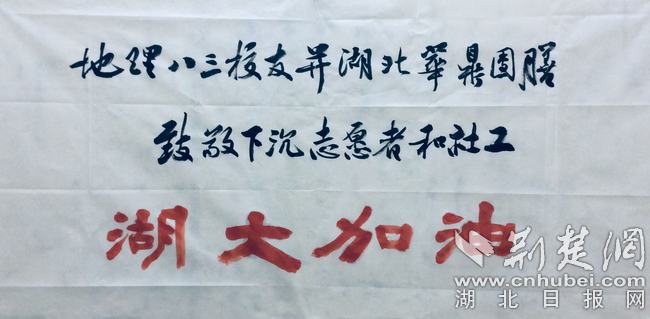 地理八三校友并湖北华鼎团膳
致敬下沉志愿者和社工
湖大加油
荆楚网
www.cnhubei.com
湖北日报网